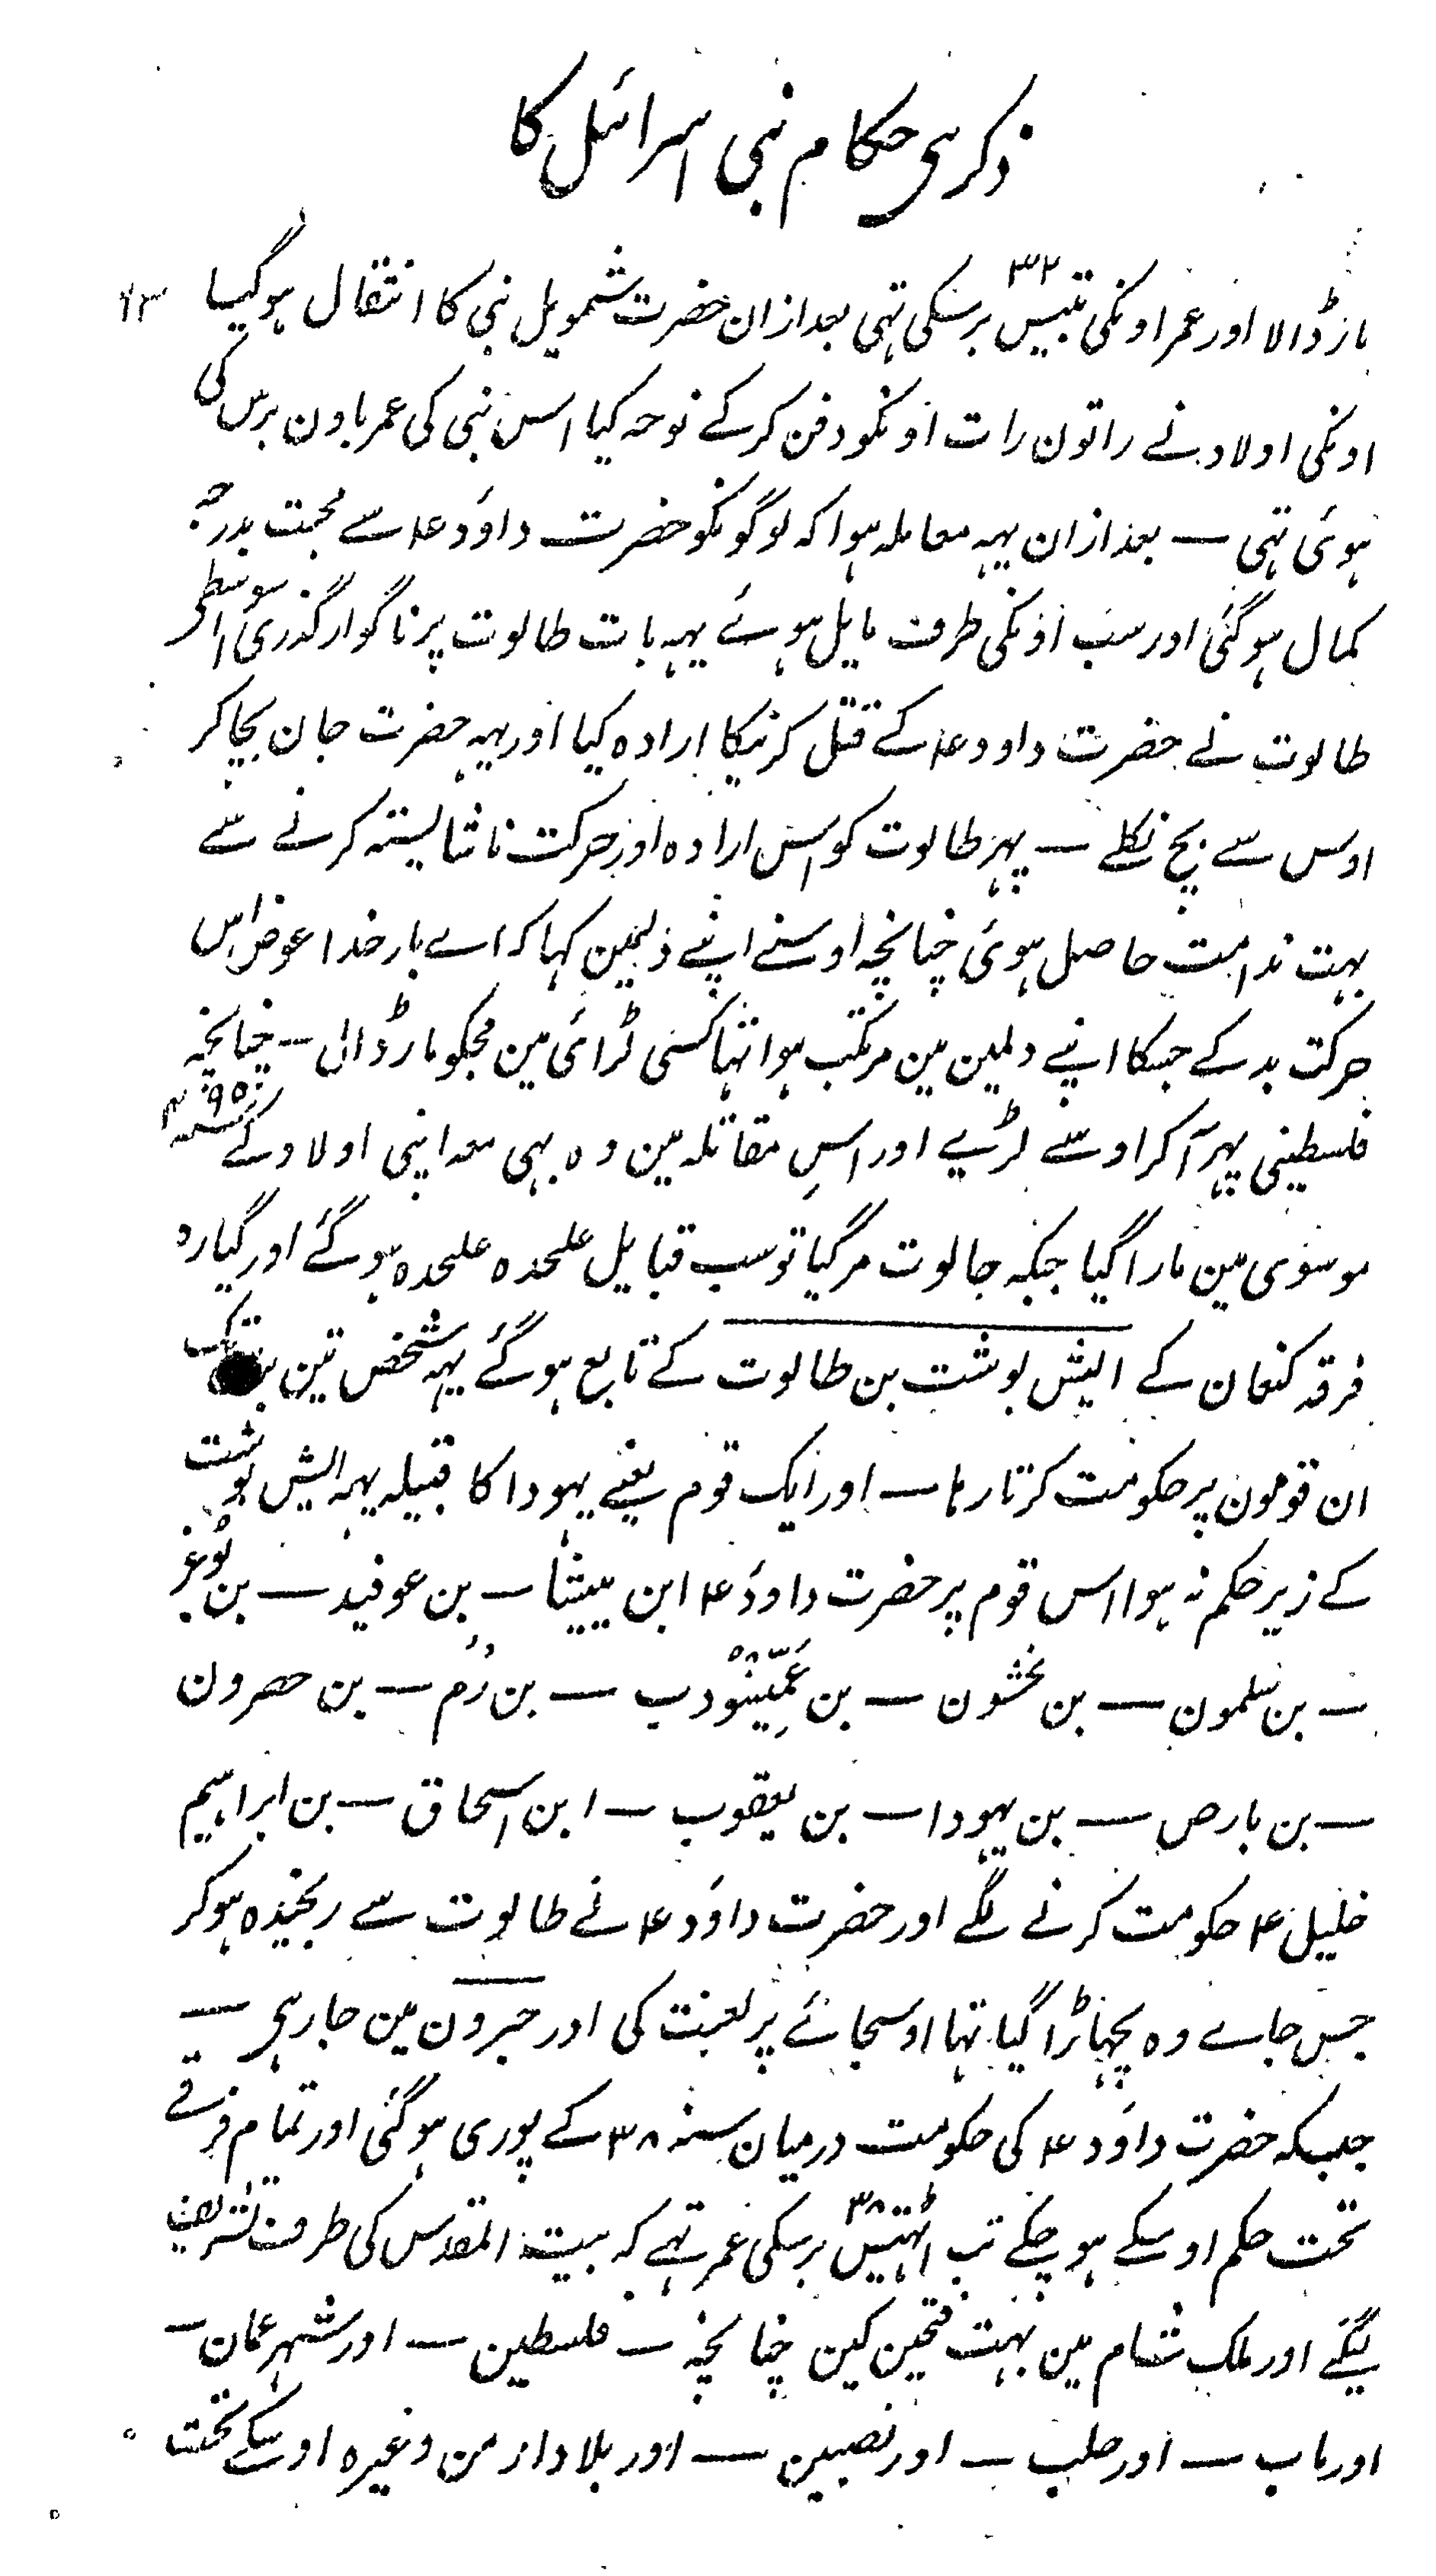 ذکر ہی حکام بنی اسرائیل کا
مار ڈالا اور عمر اونکی بتیس ۳۲ برسکی تہی بعد ازان حضرت شمویل نبی کا انتقال ہو گیا
اونکی اولاد نے راتون رات اونکو دفن کرکے نوحہ کیا اس نبی کی عمر باون برس کی
ہوئی تہی — بعد ازان یہہ معاملہ ہوا کہ لوگونکو حضرت داؤد ؑ سے محبت بدرجہ
کمال ہو گئی اور سب اونکی طرف مایل ہوئے یہہ بات طالوت پر ناگوار گذری اسوسطی
طالوت نے حضرت داود ؑ کے قتل کرنیکا ارادہ کیا اور یہہ حضرت جان بچا کر
اوس سے بچ نکلے — پہر طالوت کو اس ارادہ اور حرکت ناشایستہ کرنے سے
بہت ندامت حاصل ہوئی چنانچہ اوسنے اپنے دلمین کہا کہ اے بار خدا عوض اس
حرکت بد کے جسکا اپنے دلمین مین مرتکب ہوا تہا کسی لڑائی مین مجکو مار ڈال — چنانچہ
فلسطینی پہر آکر اوسنے لڑیے اور اس مقاتلہ مین وہ بہی معہ اپنی اولاد کے سنہ
موسوی مین مارا گیا جبکہ جالوت مر گیا تو سب قبایل علحدہ علحدہ ہو گئے اور گیارہ
فرقہ کنعان کے الیش بوشت بن طالوت کے تابع ہو گئے یہہ شخص تین برس تک
ان قومون پر حکومت کرتا رہا — اور ایک قوم یعنے یہودا کا قبیلہ یہہ الیش بوشت
کے زیر حکم نہ ہوا اس قوم پر حضرت داؤد ؑ ابن ییشا — بن عوفید — بن بوعز
— بن سلمون — بن نحشون — بن عَمِّینوُدب — بن رُم — بن حصرون
— بن بارص — بن یہودا — بن یعقوب — ابن اسحاق — بن ابراہیم
خلیل ؑ حکومت کرنے لگے اور حضرت داؤد ؑ نے طالوت سے رنجیدہ ہو کر
جس جاے وہ پچہاڑا گیا تہا اوسجائے پر لعنت کی اور حبرون مین جا رہی —
جبکہ حضرت داؤد ؑ کی حکومت درمیان سنہ ۳۸ کے پوری ہو گئی اور تمام فرقے
تحت حکم اوسکے ہو چکے تب اٹہتیس ۳۸ برسکی عمر تہے کہ بیت المقدس کی طرف تشریف
لیگئے اور ملک شام مین بہت فتحین کین چنانچہ — فلسطین — اور شہر عمان —
اور ماب — اور حلب — اور نصیبین — اور بلاد ارمن وغیرہ اوسکے تحت